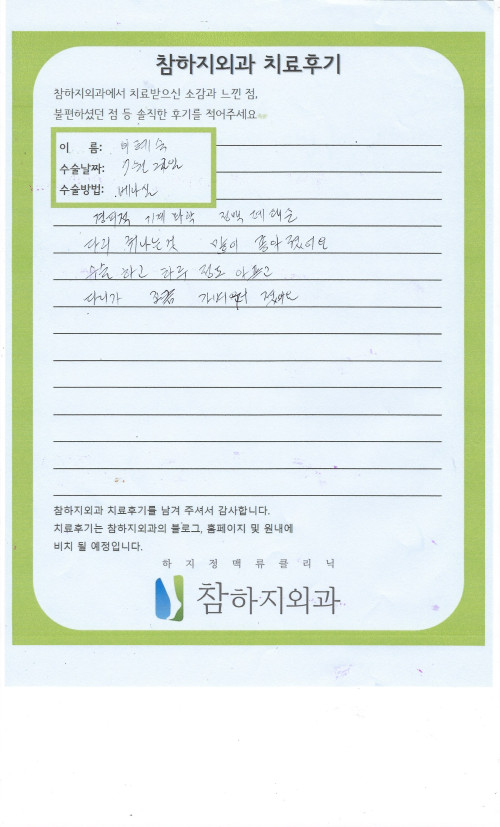 참하지외과 치료후기
참하지외과에서 치료받으신 소감과 느낀 점,
불편하셨던 점 등 솔직한 후기를 적어주세요
이 름:
수술날짜: 7월
수술방법: 베나실
다리 쥐나는것 많이 좋아졌어요
수술 하고 하루 정도 아프고
다리가 조금 가벼워 졌어요
참하지외과 치료후기를 남겨 주셔서 감사합니다.
치료후기는 참하지외과의 블로그, 홈페이지 및 원내에
비치 될 예정입니다.
하지정맥류클리닉
참하지외과